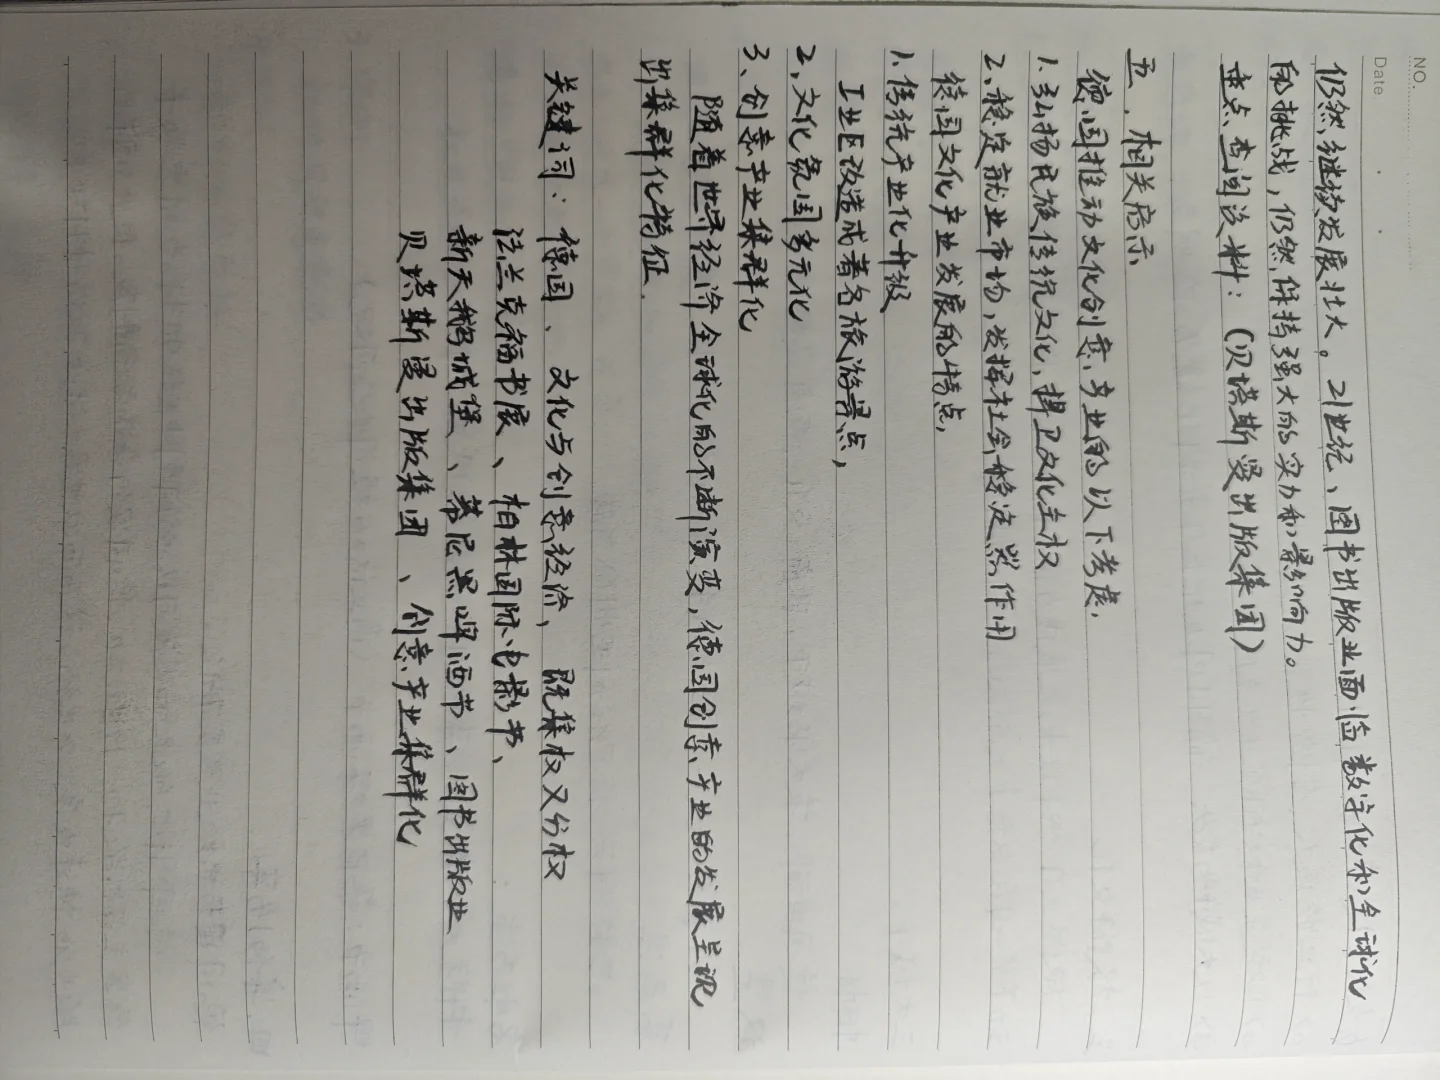 NO.
Date
仍然继续发展壮大。21世纪、图书出版业面临数字化和全球化
的挑战,仍然保持强大的实力和影响力。
重点查阅资料:(贝塔斯曼出版集团)
五、相关启示
德国推动文化创意产业的以下考虑.
1.弘扬民族传统文化,捍卫文化主权
2.稳定就业市场,发挥社会稳定器作用
德国文化产业发展的特点
1.传统产业化升级
工业区改造成著名旅游景点,
2.文化氛围多元化
3.创意产业集群化
随着世界经济全球化的不断演变,德国创意产业的发展呈现
出集群化特征.
关键词:德国、文化与创意经济,既集权又分权
法兰克福书展、柏林国际电影节、
新天鹅城堡、慕尼黑啤酒节、图书出版业
贝塔斯曼出版集团、创意产业集群化